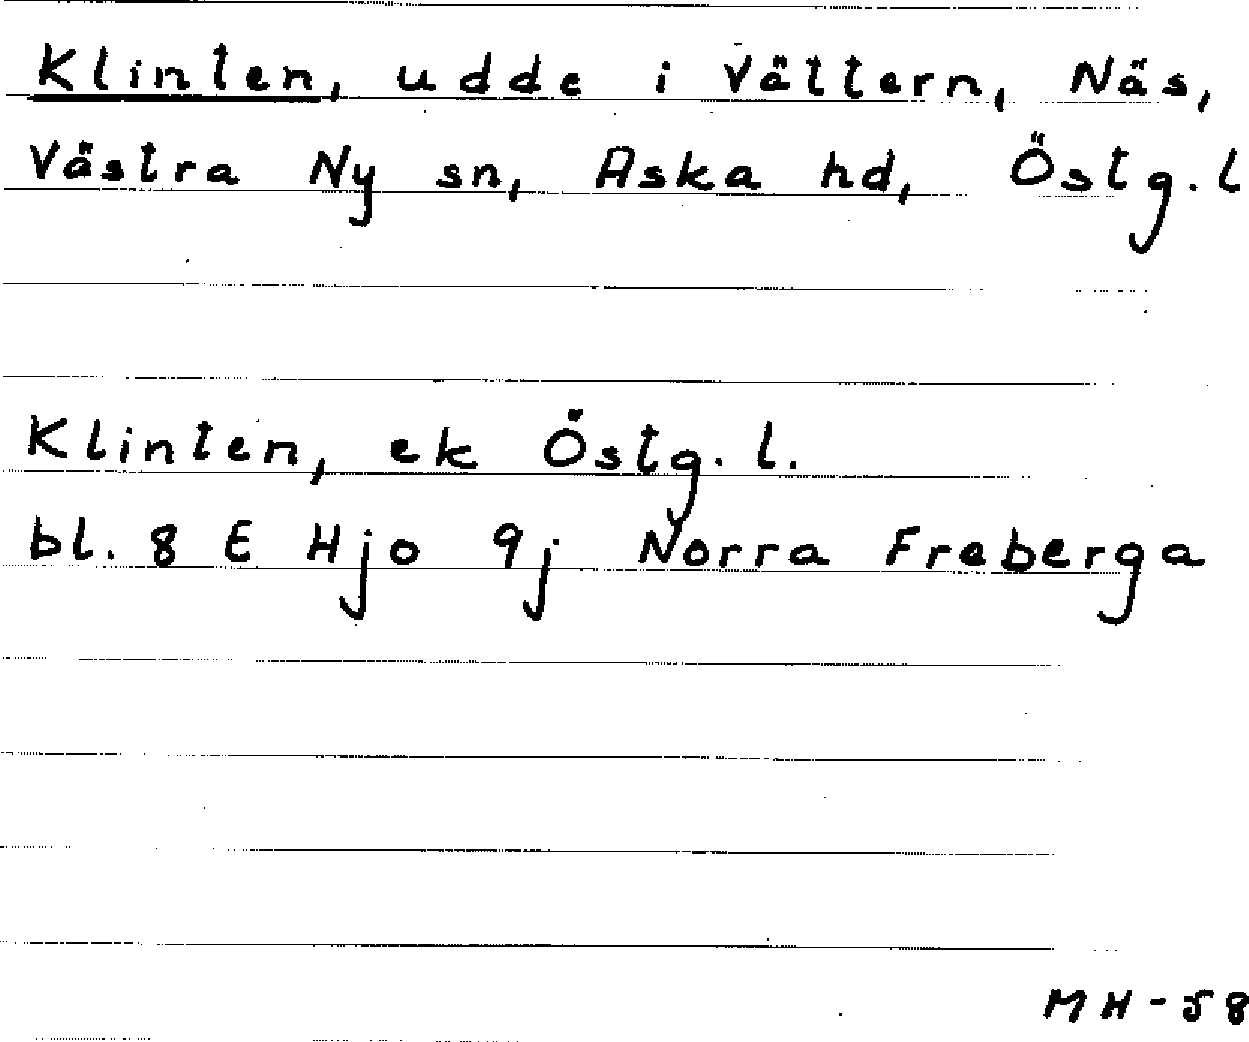 Klinten, udde i Vättern, Näs,
Västra Ny sn, Aska hd, Östg. l
Klinten, ek Östg. l.
bl. 8 E Hjo 9j Norra Freberga
MH-58